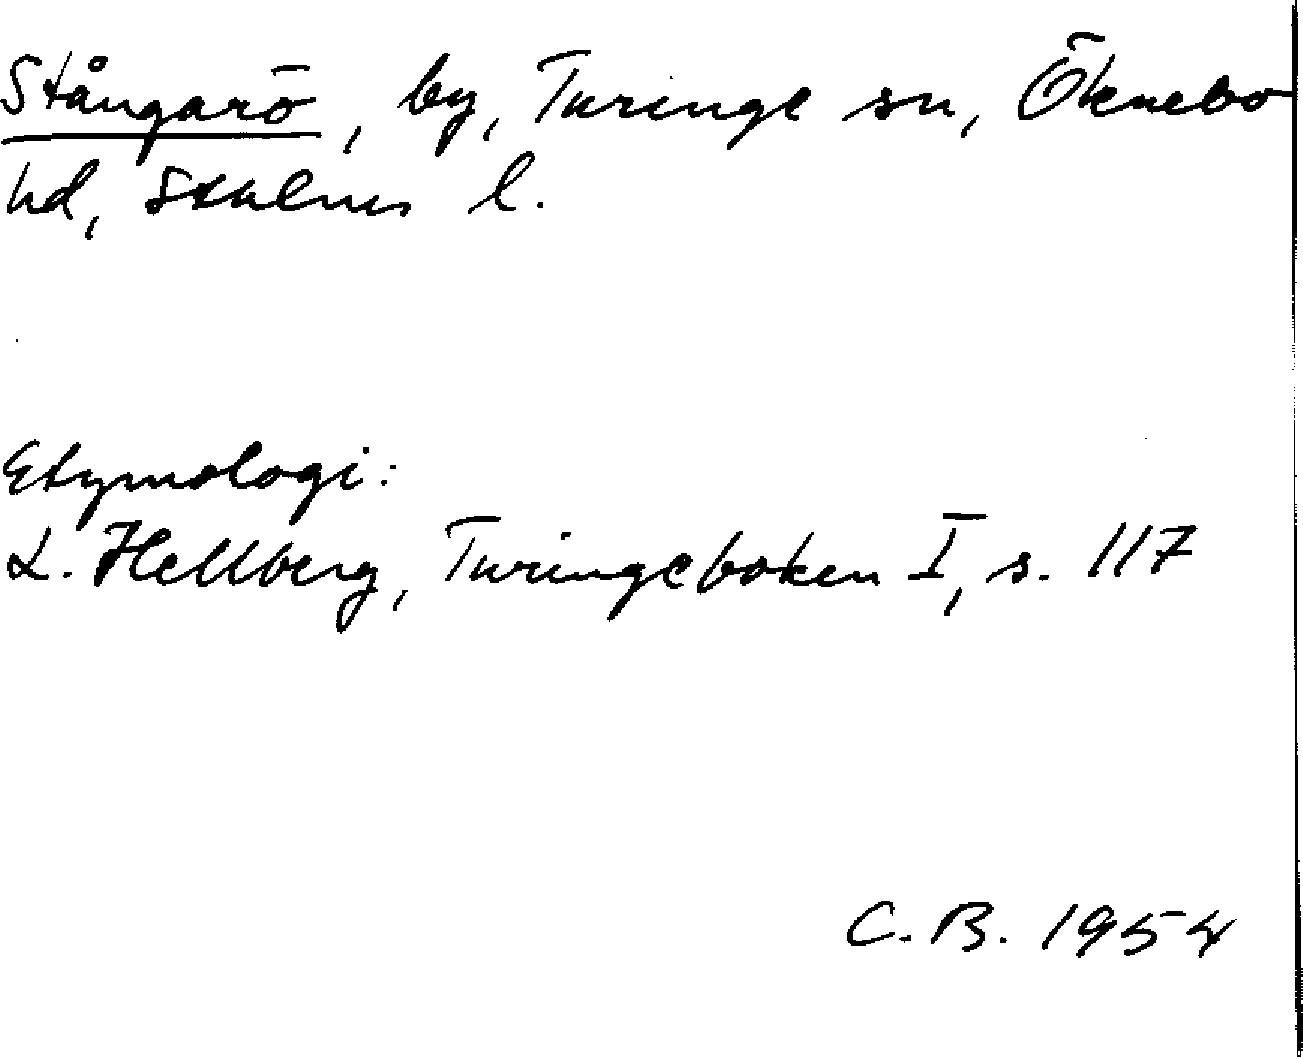 Stångarö, by, Turinge sn, Öknebo
hd, Sthlms l.
Etymologi:
L. Hellberg, Turingeboken I, s. 117
C.B. 1954